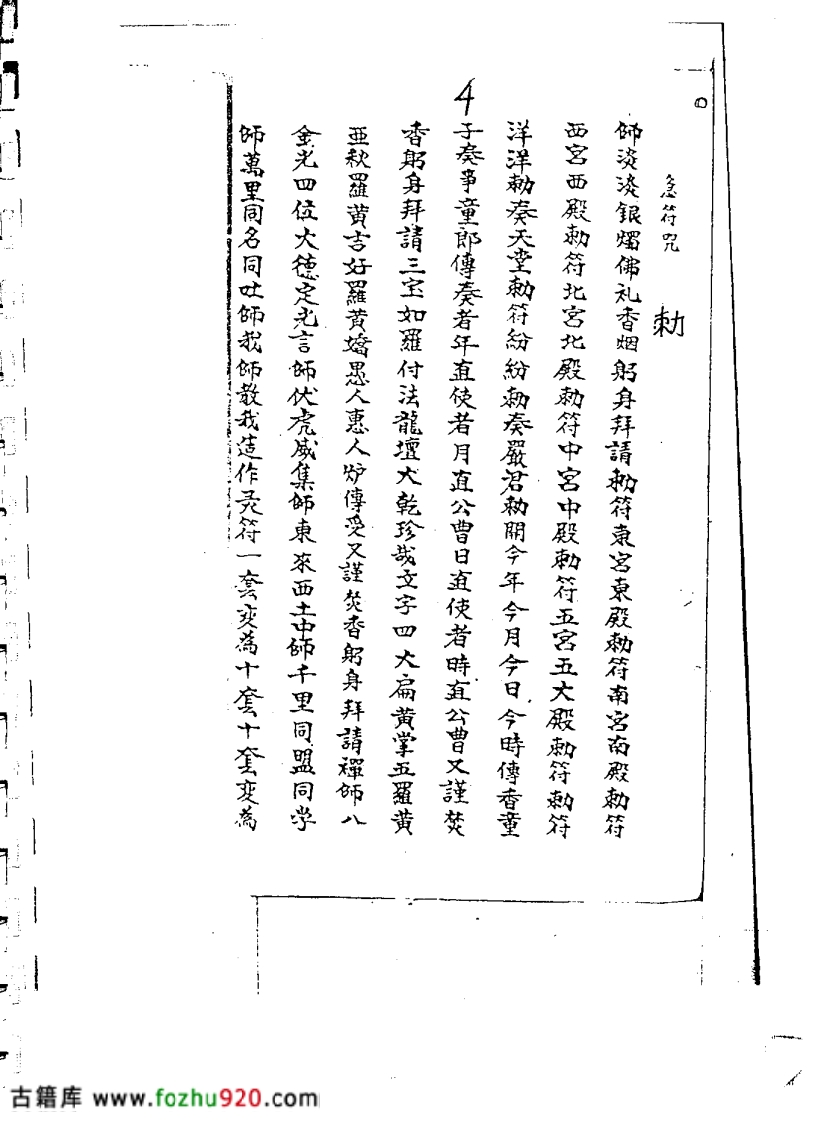 急符咒
勅
師淡淡銀燭佛礼香烟躬身拜請勅符東宮東殿勅符南宮南殿勅符
西宮西殿勅符北宮北殿勅符中宮中殿勅符五宮五大殿勅符勅符
洋洋勅奏天堂勅符紛紛勅奏嚴君勅開今年今月今日今時傳香童
子奏事童郎傳奏者年直使者月直公曹日直使者時直公曹又謹焚
香躬身拜請三宝如羅付法龍壇大乾珍哉文字四大扁黄掌五羅黄
亜秋羅黄吉好羅黄嬌愚人惠人炉傳受又謹焚香躬身拜請禪師八
金光四位大德定光言師伏虎威集師東來西土中師千里同盟同学
師萬里同名同吐師我師教我造作灵符一套変為十套十套変為
4
古籍库 www.fozhu920.com